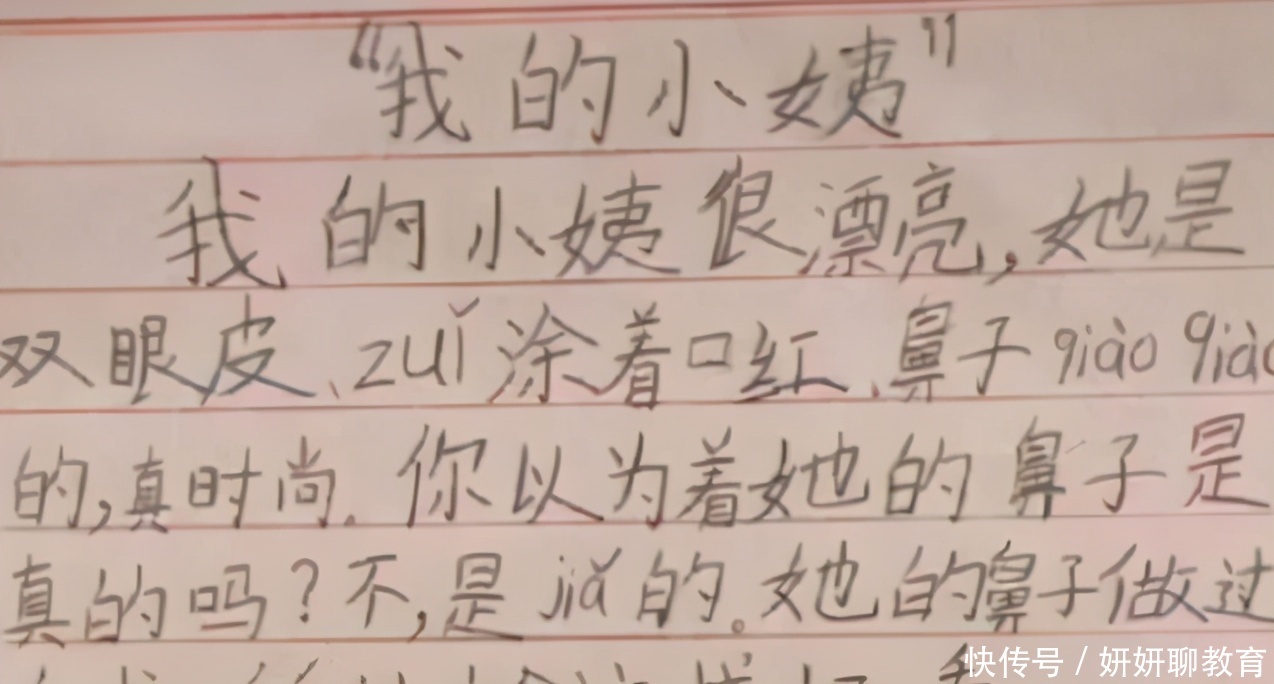 “我的小姨”
我的小姨很漂亮,她是
双眼皮、zuǐ涂着口红、鼻子qiào qiào
的,真时尚.你以为着她的鼻子是
真的吗?不,是jiǎ的。她的鼻子做过
快传号 / 妍妍聊教育